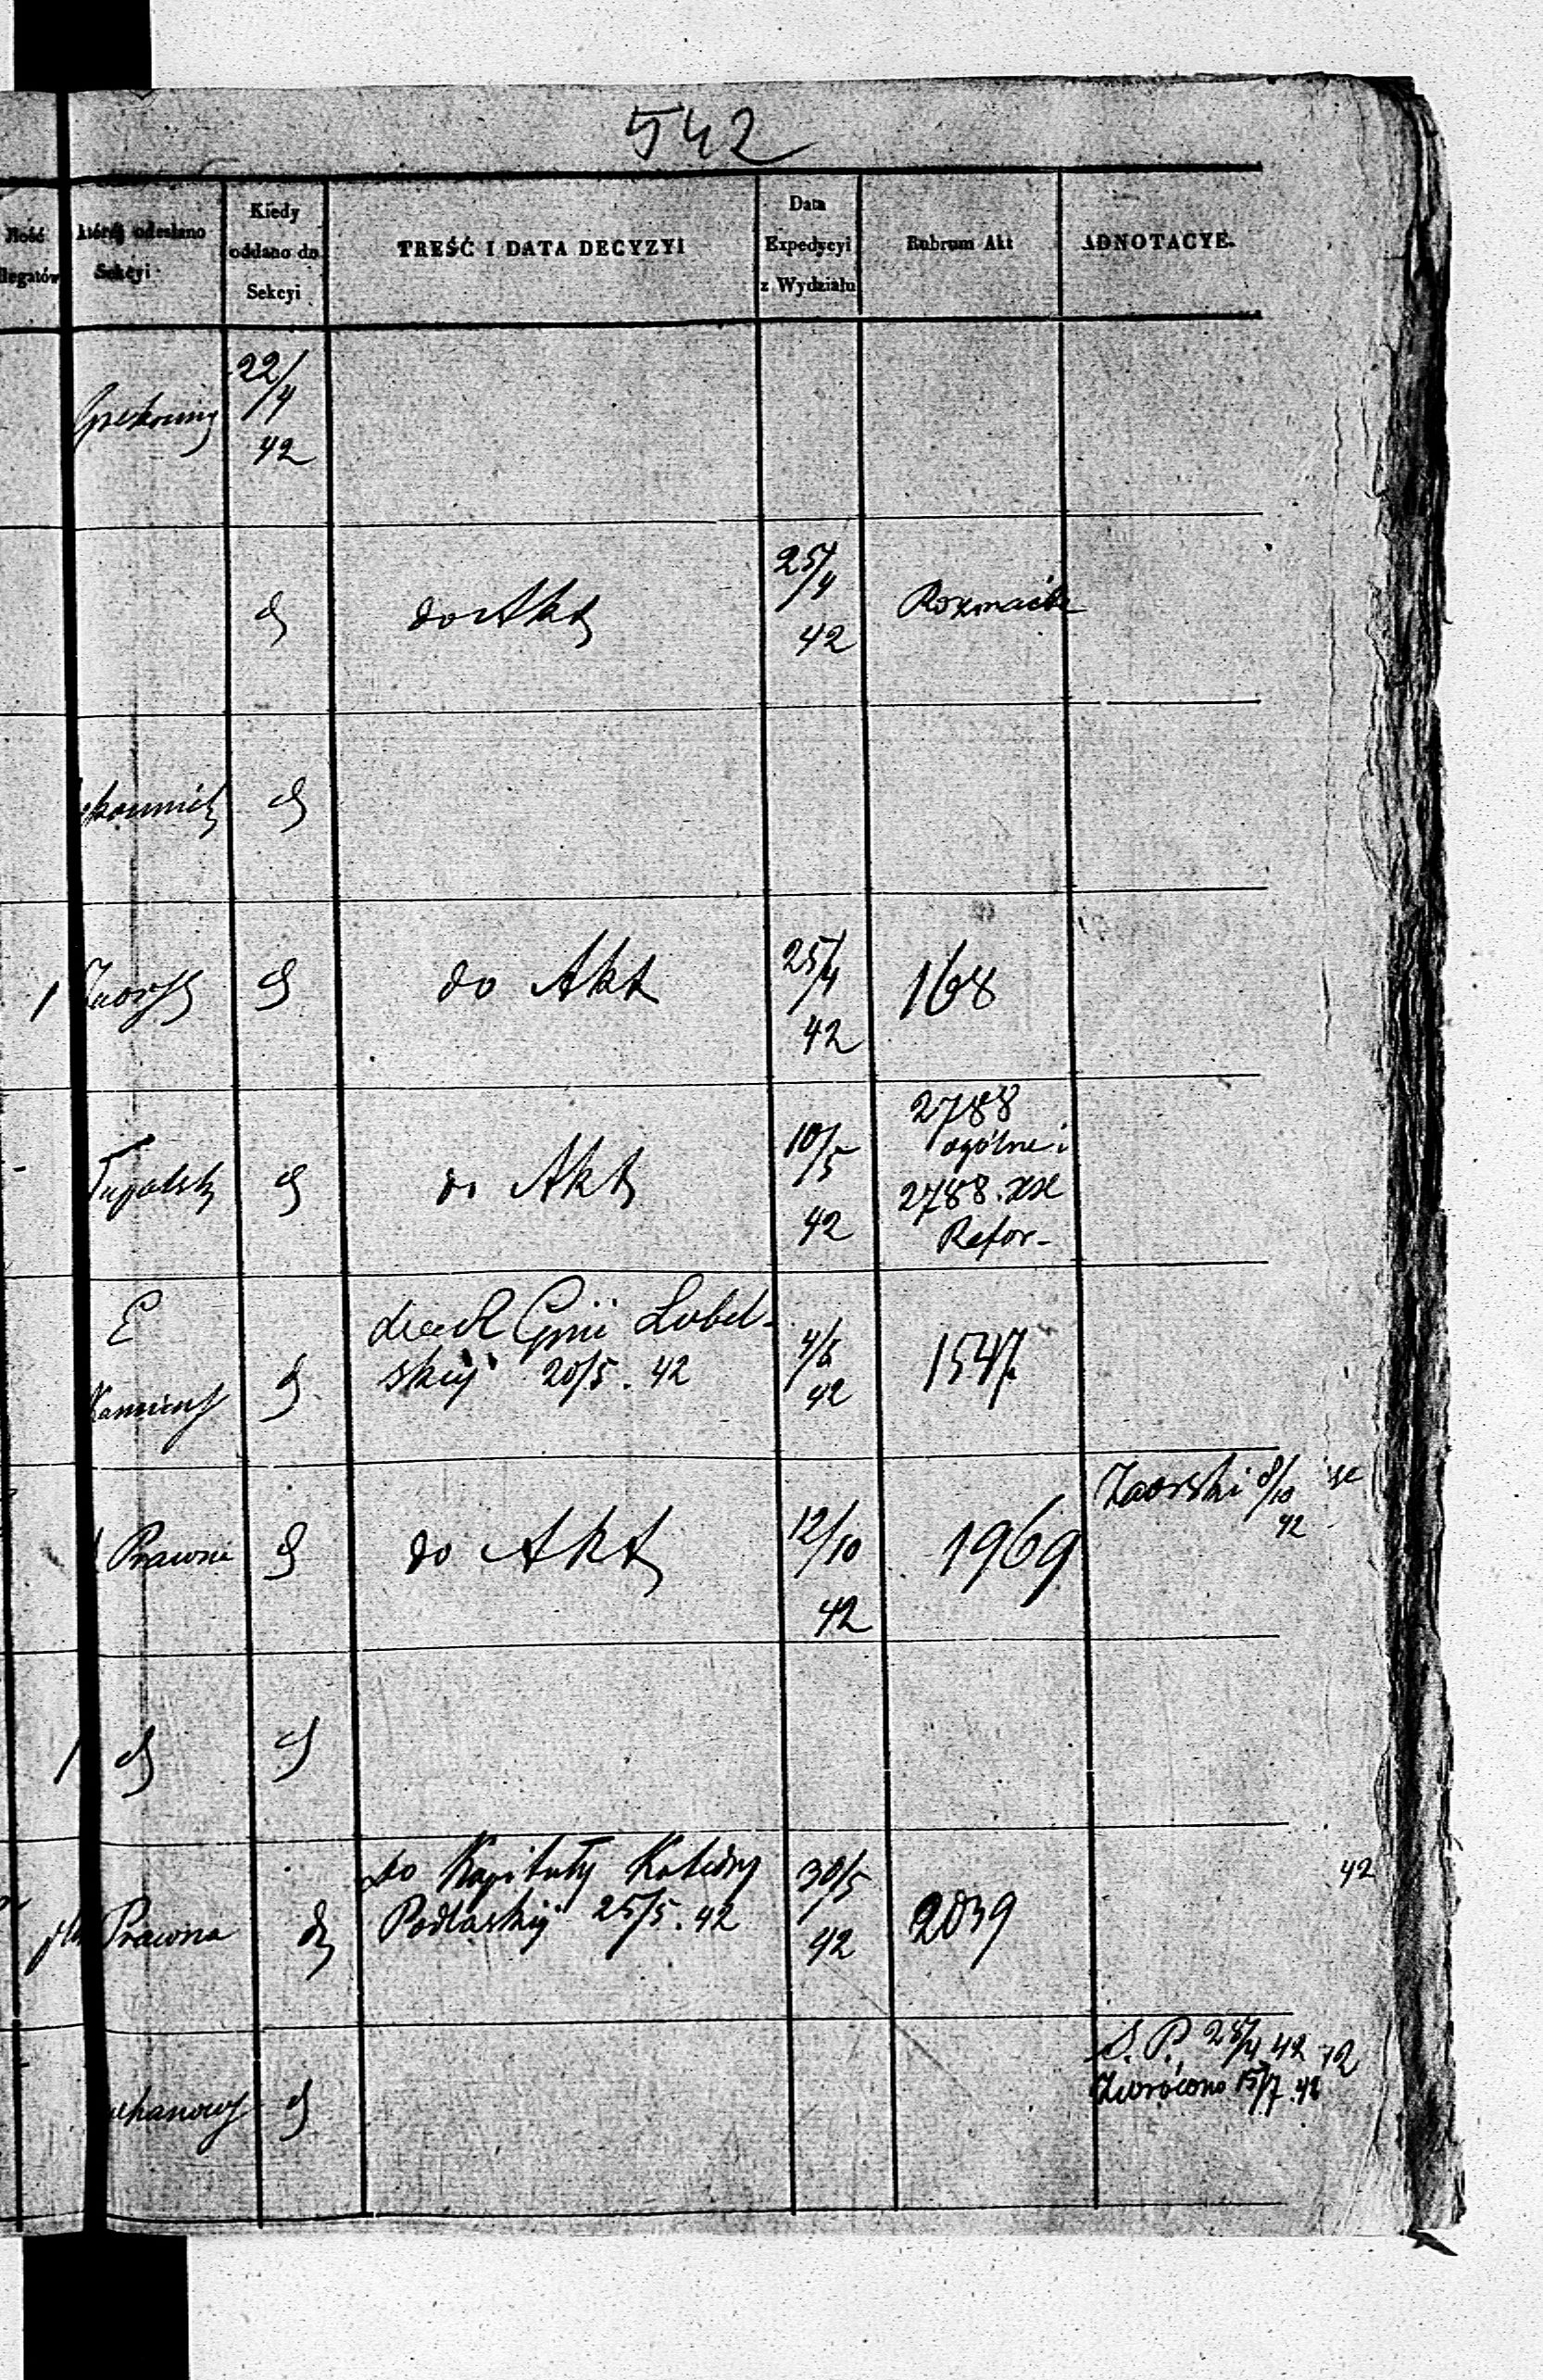 542
Ilość
llegatów
której odesłano
Sekcyi
Kiedy
oddano do
Sekcyi
TREŚĆ I DATA DECYZYI
Data
Expedycyi
z Wydziału
Rubrum Akt
ADNOTACYE.
22/4
42
do Akt
25/4
42
Rozmaite
1
do Akt
25/4
42
168
do Akt
10/5
42
2788
ogólne i
2788. xx
Refor-
E
Gńii Lubel-
skiej 20/5. 42
4/6
42
1547
Prawna
do Akt
12/10
42
1969
Zaorski 8/10
42
1
Prawna
do Kapituły Katedry
Podlaskiej 25/5. 42
30/5
42
2039
42
S. P. 28/4 42
Zwrócono 15/7 42